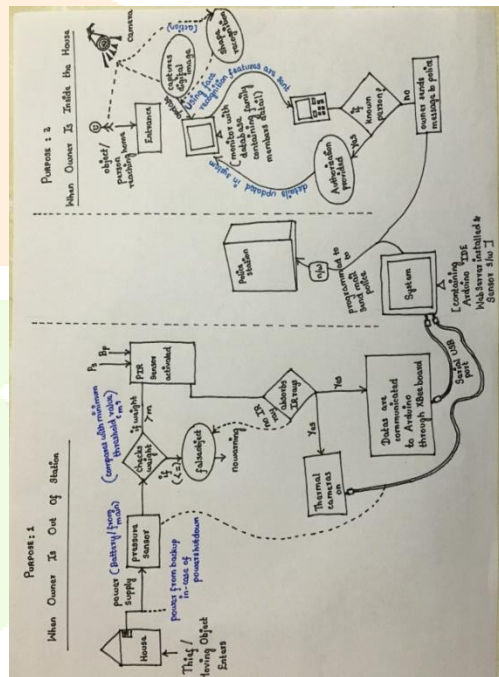 PURPOSE : 1
When Owner Is Out Of Station
House
Thief/
Moving Object
Enters
power
supply
(Battery/from
main)
power from backup
in-case of
powershutdown
pressure
sensor
checks
weight
(compares with minimum
threshold value 'm')
if weight
>m
if
(<=)
falseobject
nowarning
Ps
Bp
PIR
Sensor
activated
absorbs
IR rays
no IR
ray
Yes
Yes
Thermal
cameras
on
Datas are
communicated
to Arduino
through XBee board
Serial USB
port
System
[containing
Arduino IDE
WebServer installed &
Sensor s/w]
Police
station
n/w
programmed to
send mail
police
PURPOSE : 2
When Owner Is Inside the House
object/
person
reaching
home
Entrance
camera
(action)
captures
digital
image
Shape
recognition
Using face
recognition features are sent
monitor with
database
containing family
members detail)
details updated in system
if
known
person?
Yes
no
Authorization
provided
owner sends
message to police